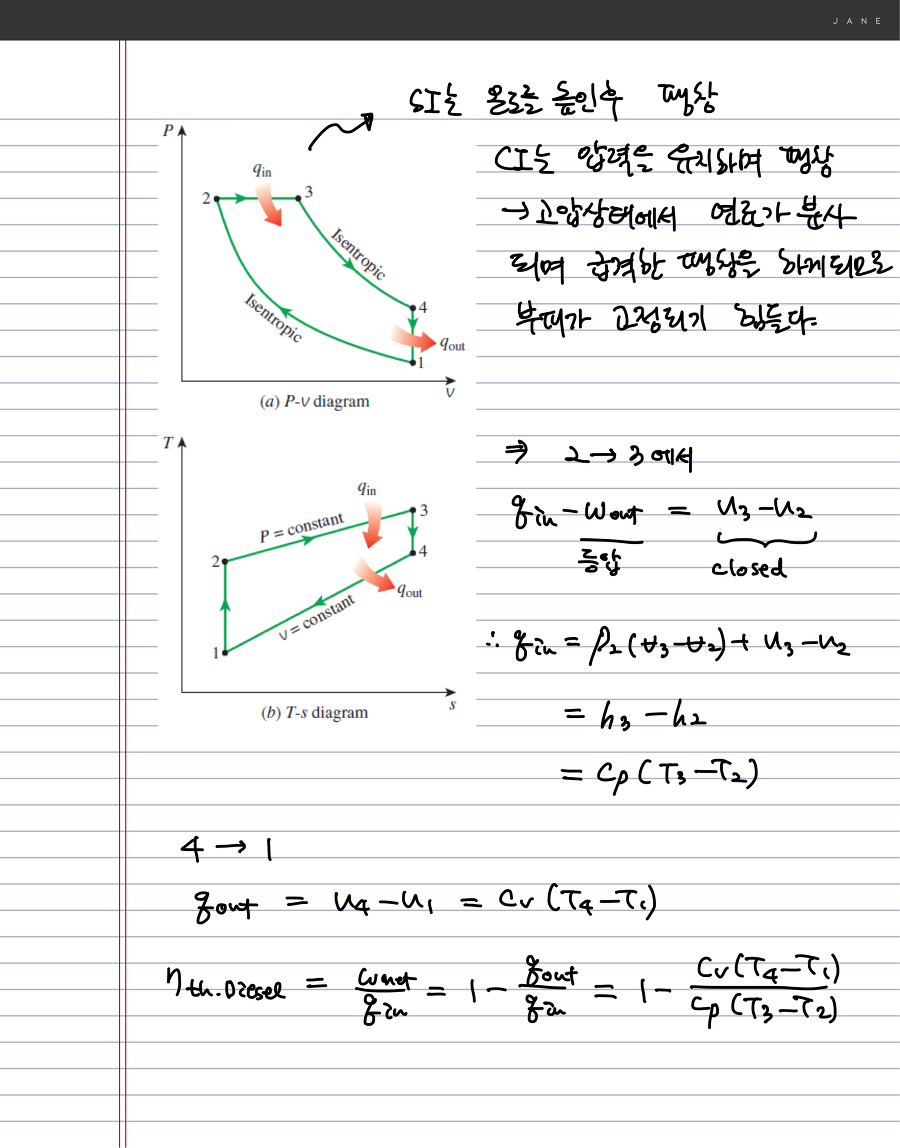 JANE
SI는 온도를 높인후 팽창
CI는 압력을 유지하며 팽창
→ 고압상태에서 연료가 분사
되며 급격한 팽창을 하게되므로
부피가 고정되기 힘들다.
P
q_in
2
3
Isentropic
Isentropic
4
q_out
1
v
(a) P-v diagram
T
q_in
3
P = constant
4
2
q_out
v = constant
1
s
(b) T-s diagram
⇒ 2 → 3 에서
q_in - w_out = u_3 - u_2
등압 closed
∴ q_in = P_2 (v_3 - v_2) + u_3 - u_2
= h_3 - h_2
= Cp (T_3 - T_2)
4 → 1
q_out = u_4 - u_1 = Cv (T_4 - T_1)
η_th.Diesel = w_net / q_in = 1 - q_out / q_in = 1 - Cv (T_4 - T_1) / Cp (T_3 - T_2)